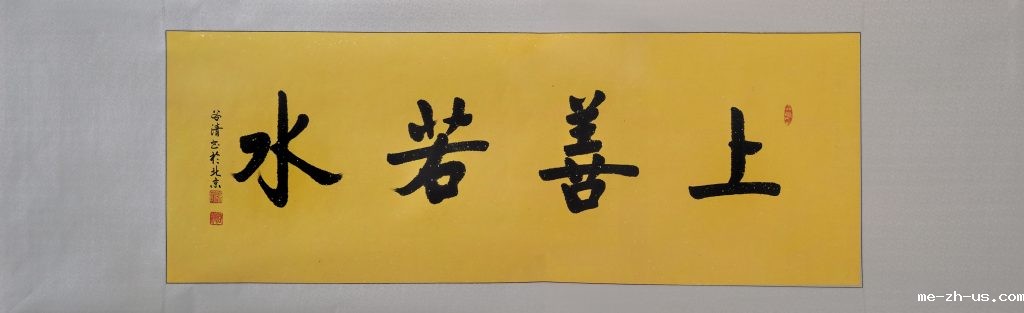 上善若水
谷清书於北京
me-zh-us.com